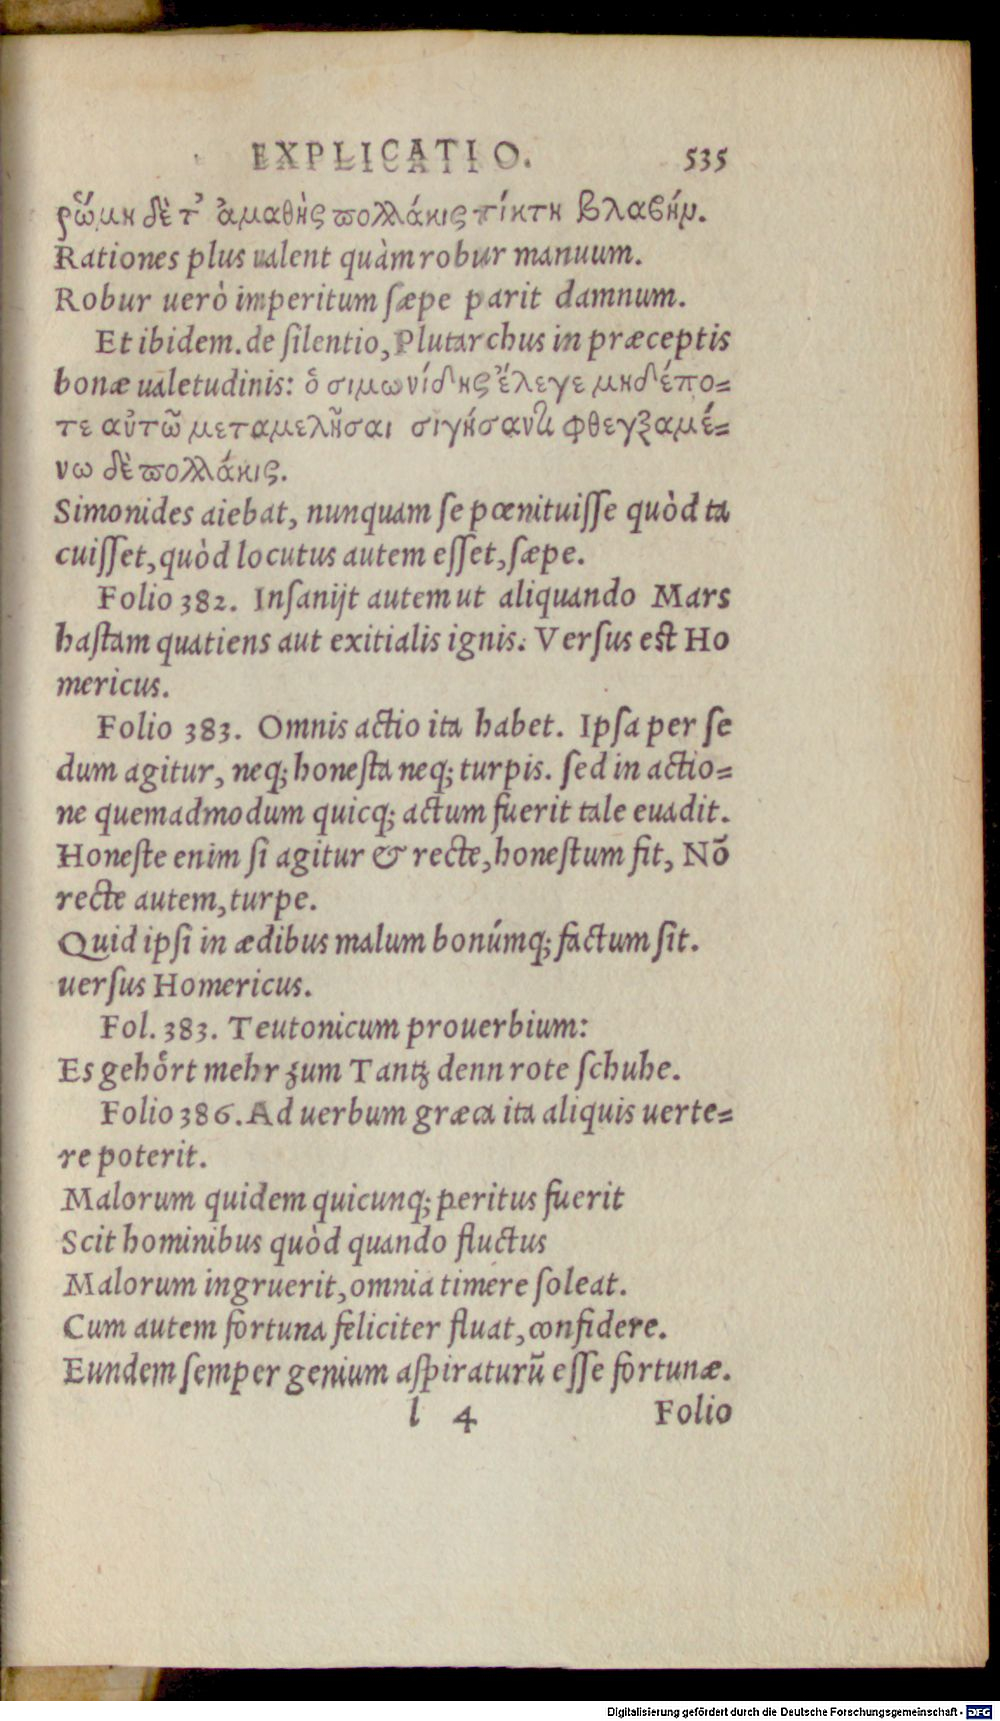 EXPLICATIO. 535
ῥώμη δὲ τ' ἀμαθὴς πολλάκις τίκτη βλαβήν.
Rationes plus ualent quàm robur manuum.
Robur uerò imperitum sæpe parit damnum.
Et ibidem. de ſilentio, Plutarchus in præceptis
bonæ ualetudinis: ὁ σιμωνίδης ἔλεγε μηδέπο=
τε αὐτῶ μεταμελῆσαι σιγήσαντι φθεγξαμέ=
νω δὲ πολλάκις.
Simonides aiebat, nunquam ſe pœnituiſſe quòd ta
cuiſſet, quòd locutus autem eſſet, ſæpe.
Folio 382. Inſanijt autem ut aliquando Mars
haſtam quatiens aut exitialis ignis. Verſus eſt Ho
mericus.
Folio 383. Omnis actio ita habet. Ipſa per ſe
dum agitur, neq; honeſta neq; turpis. ſed in actio=
ne quemadmodum quicq; actum fuerit tale euadit.
Honeſte enim ſi agitur & recte, honeſtum fit, Nõ
recte autem, turpe.
Quid ipſi in ædibus malum bonúmq; factum ſit.
uerſus Homericus.
Fol. 383. Teutonicum prouerbium:
Es gehoͤrt mehr zum Tantz denn rote ſchuhe.
Folio 386. Ad uerbum græca ita aliquis uerte=
re poterit.
Malorum quidem quicunq; peritus fuerit
Scit hominibus quòd quando fluctus
Malorum ingruerit, omnia timere ſoleat.
Cum autem fortuna feliciter fluat, confidere.
Eundem ſemper genium aſpiraturũ eſſe fortunæ.
l 4 Folio
Digitalisierung gefördert durch die Deutsche Forschungsgemeinschaft - DFG